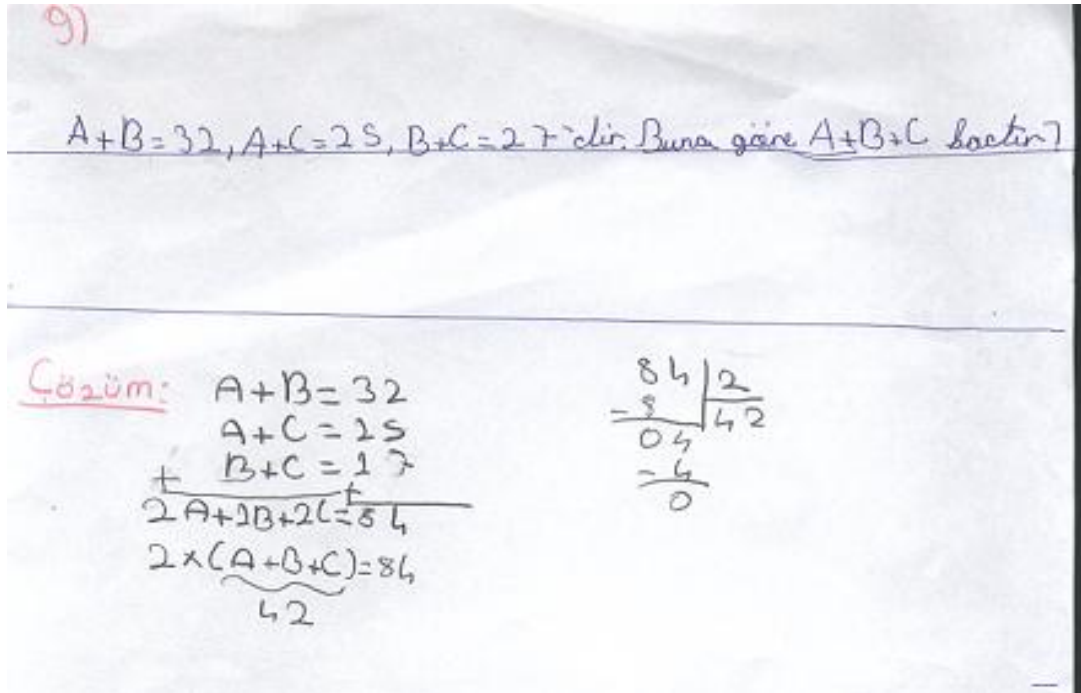 9)
A+B=32, A+C=25, B+C=27'dir. Buna göre A+B+C kaçtır?
Çözüm:
A+B=32
A+C=25
+ B+C=17
2A+2B+2C=84
2x(A+B+C)=84
42
84 | 2
-8 | 42
04
-4
0